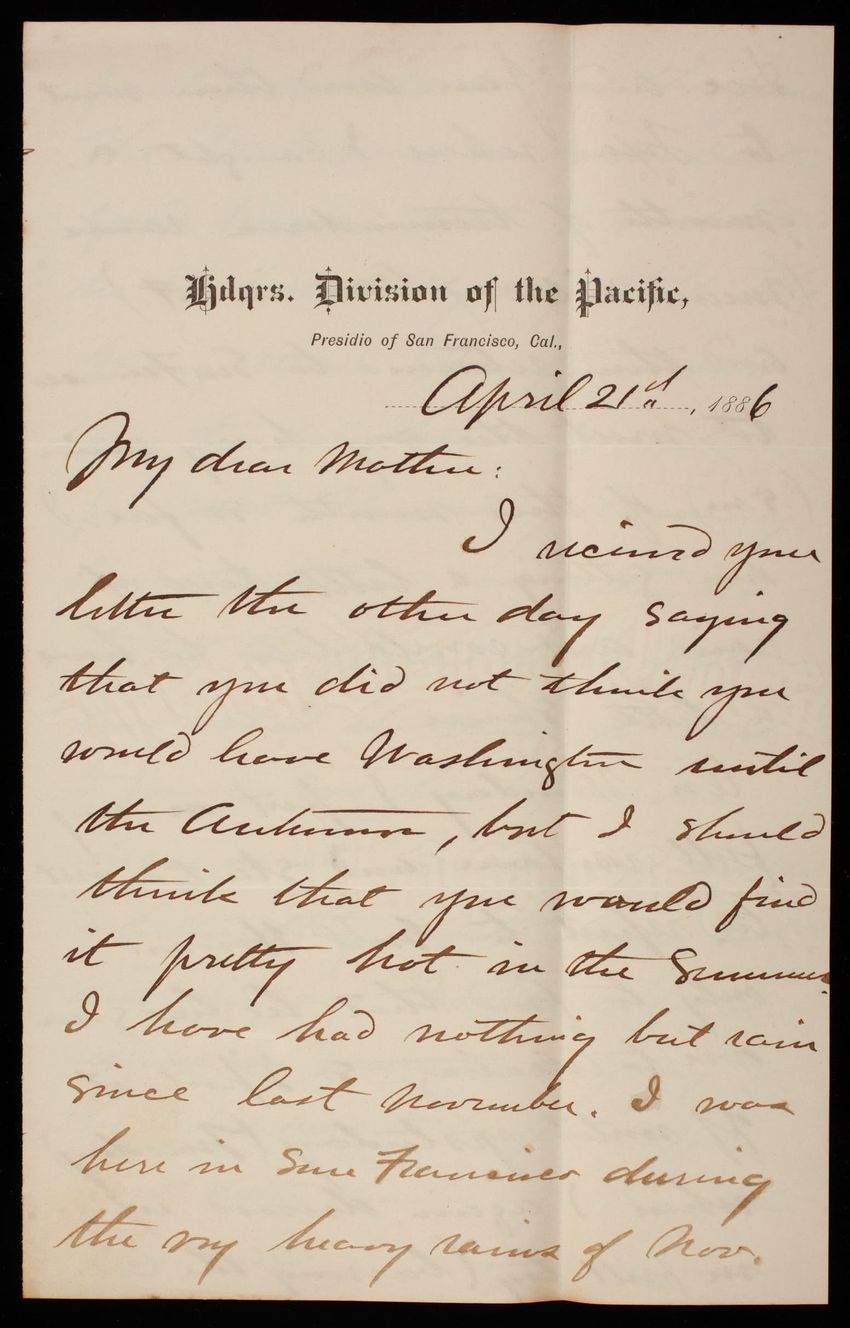 Hdqrs. Division of the Pacific,
Presidio of San Francisco, Cal.,
April 21d, 1886
My dear Mother:
I received your
letter the other day saying
that you did not think you
would leave Washington until
the Autumn, but I should
think that you would find
it pretty hot in the Summer.
I have had nothing but rain
since last November. I was
here in San Francisco during
the very heavy rains of Nov.